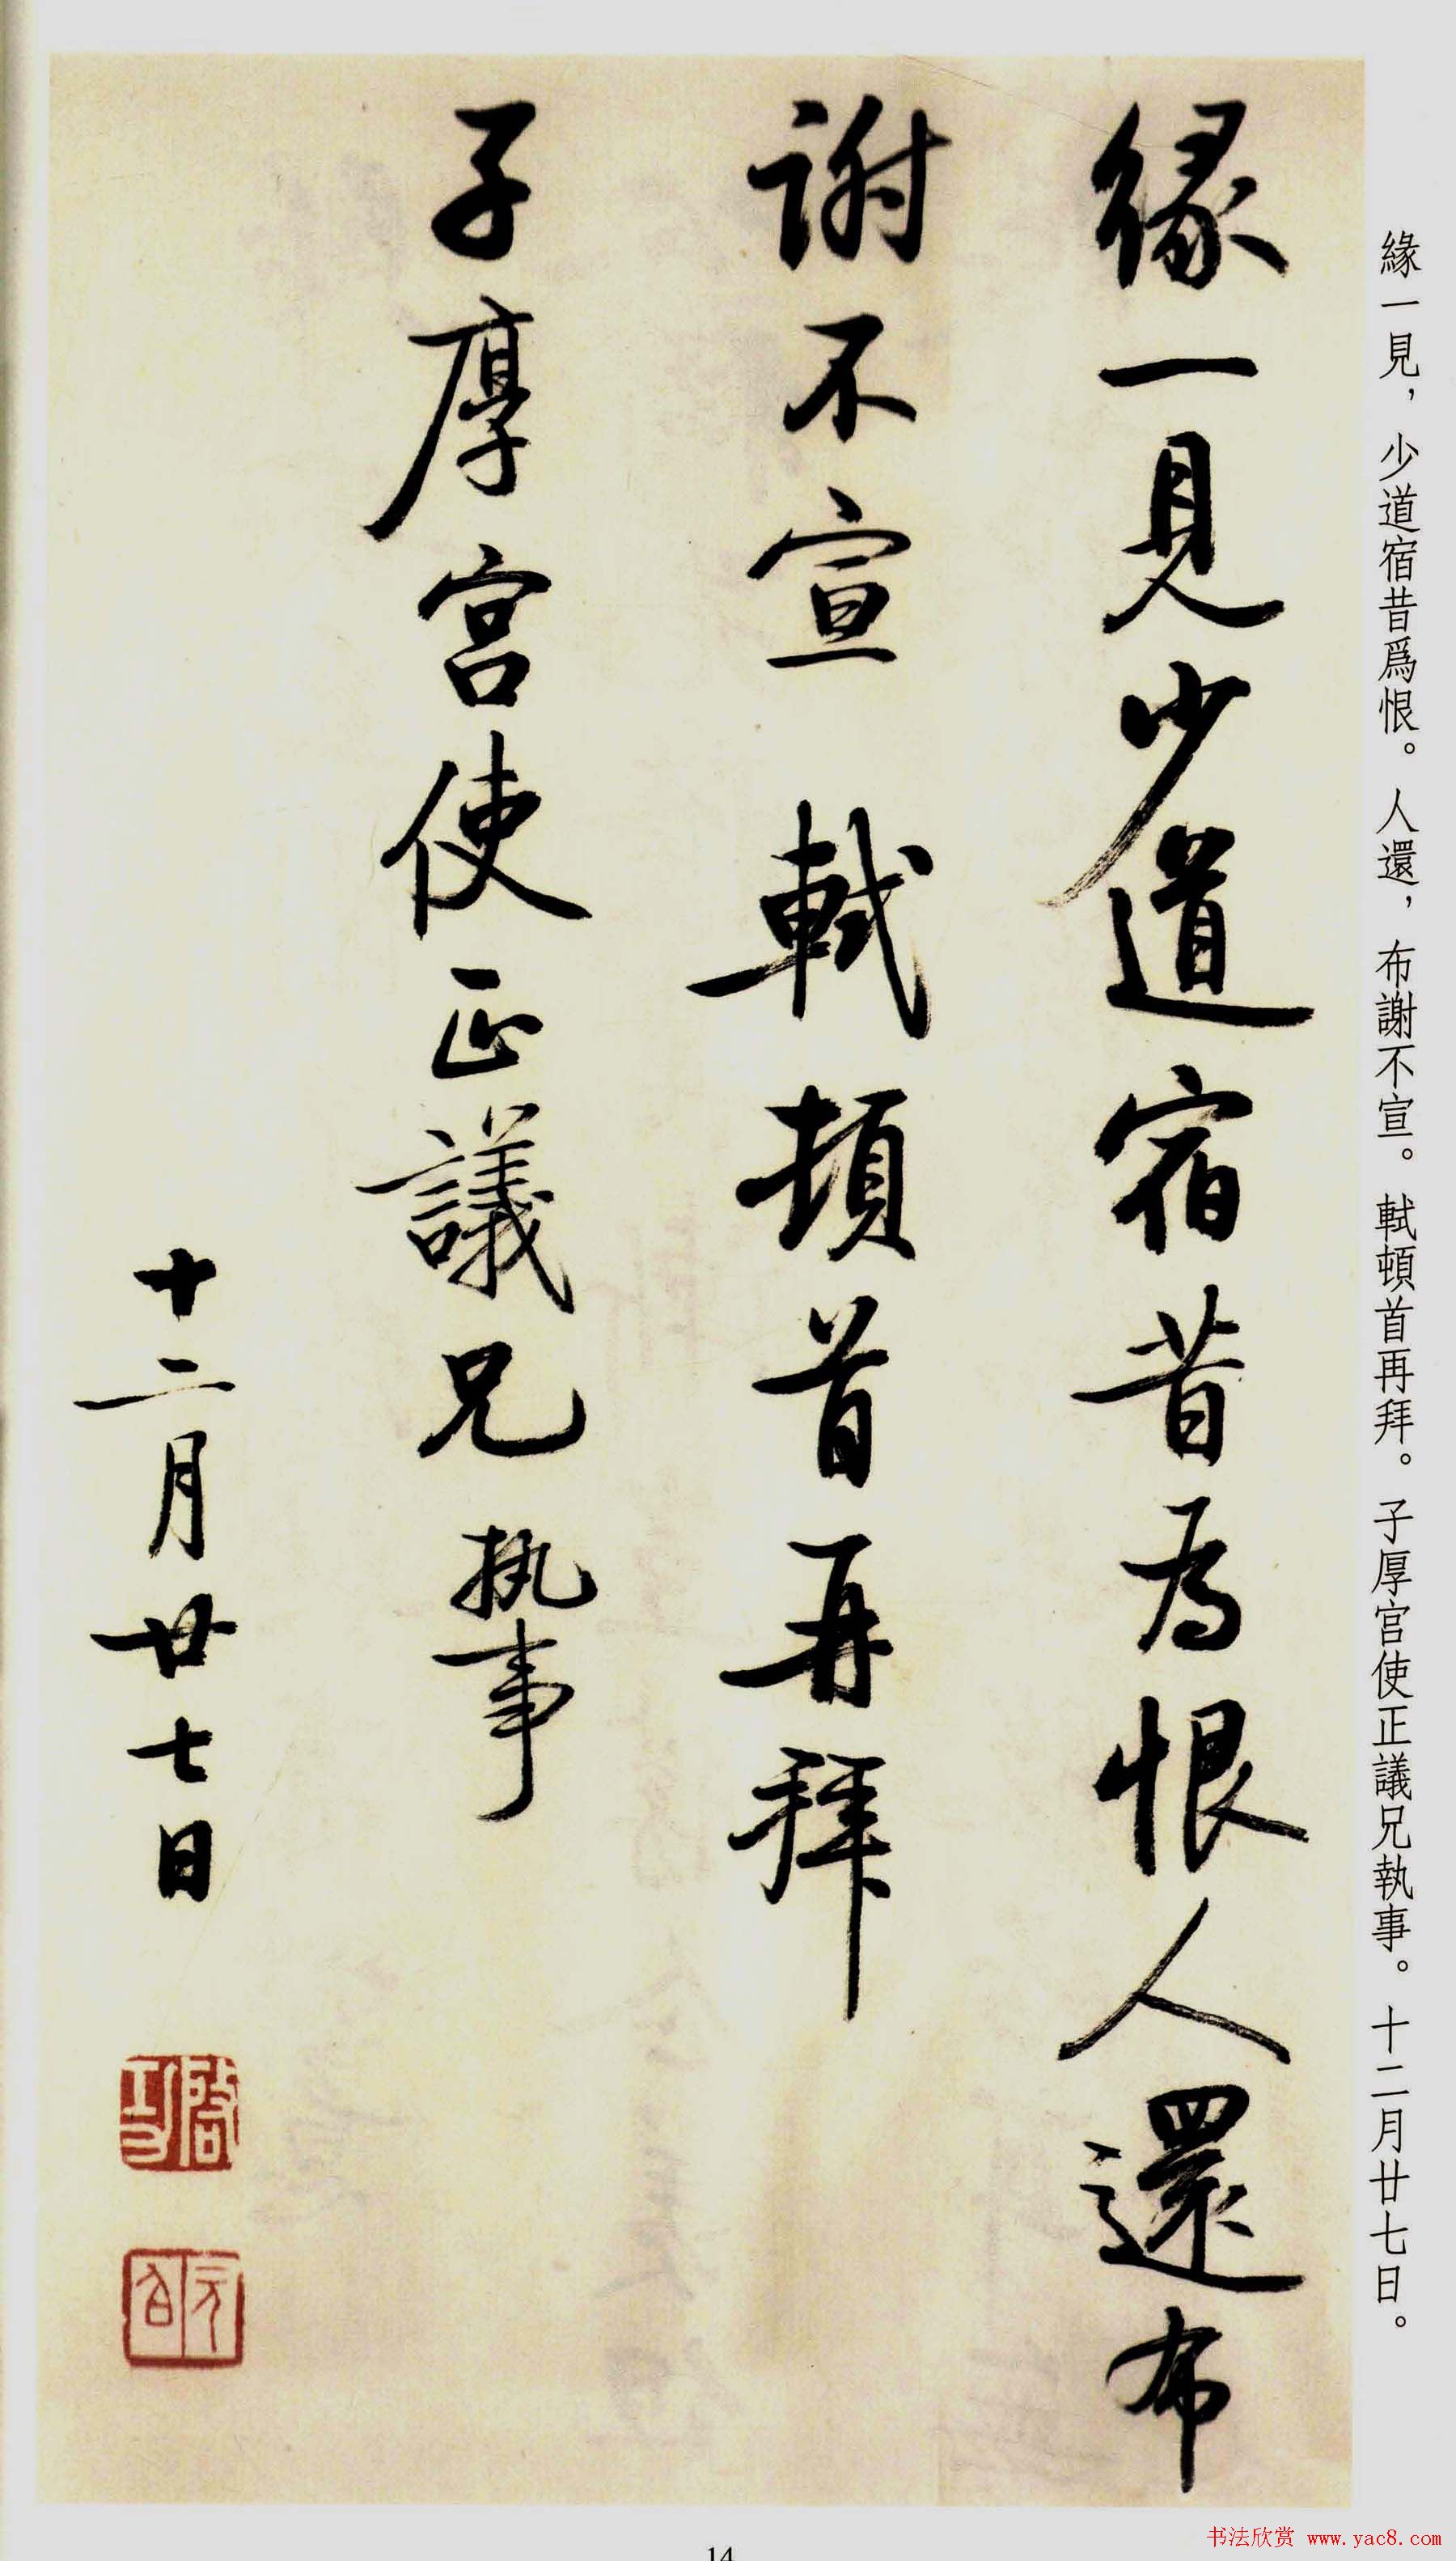 緣一見，少道宿昔爲恨。人還，布謝不宣。軾頓首再拜。子厚宮使正議兄執事。十二月廿七日。
緣一見少道宿昔为恨人還布
謝不宣 軾頓首再拜
子厚宮使正議兄执事
十二月廿七日
啓功
元白
14
书法欣赏 www.yac8.com